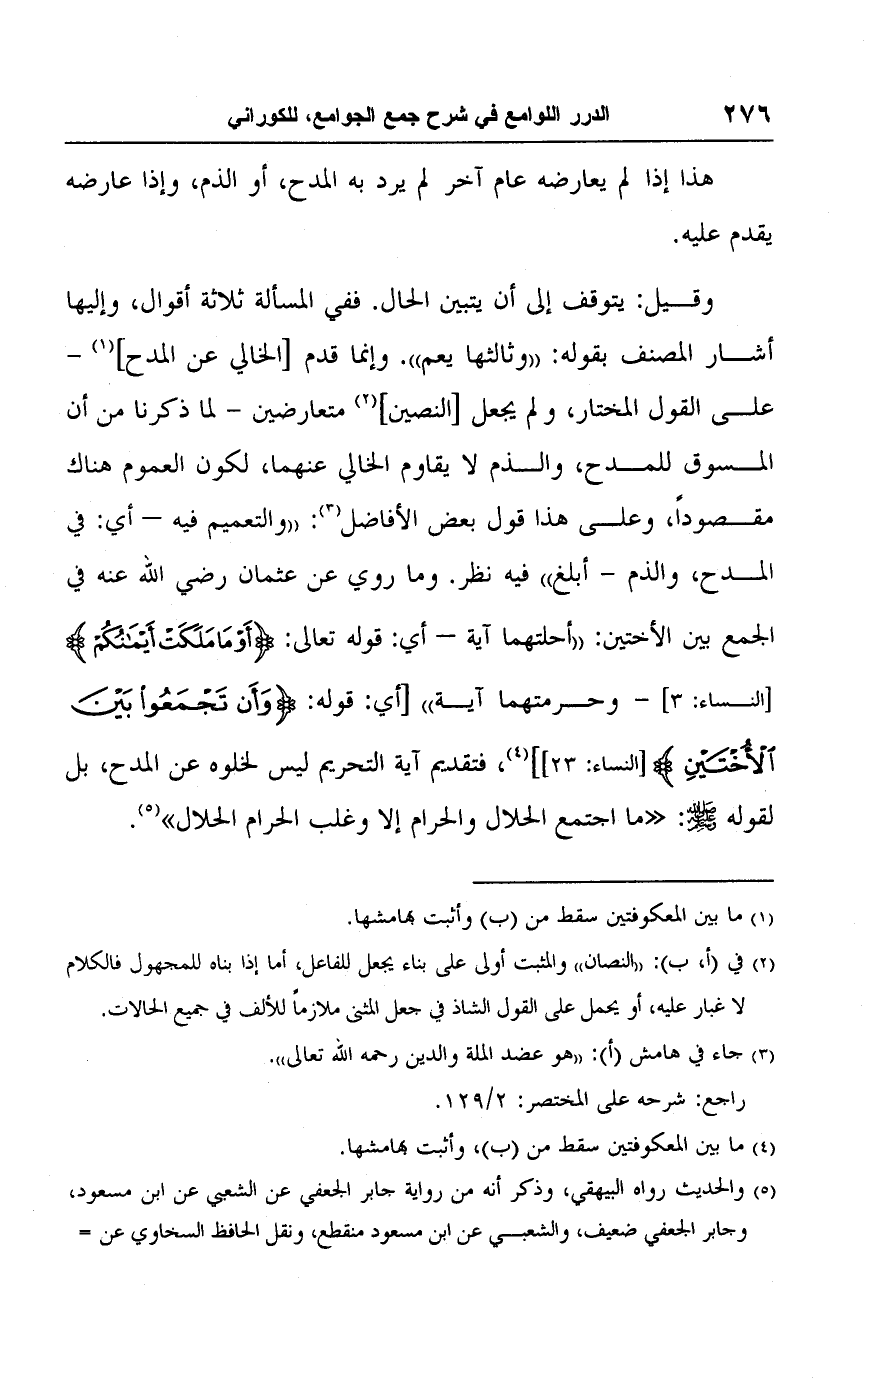 ٢٧٦ الدرر اللوامع في شرح جمع الجوامع، للكوراني
هذا إذا لم يعارضه عام آخر لم يرد به المدح، أو الذم، وإذا عارضه
يقدم عليه.
وقيل: يتوقف إلى أن يتبين الحال. ففي المسألة ثلاثة أقوال، وإليها
أشار المصنف بقوله: ((وثالثها يعم)). وإنما قدم [الخالي عن المدح](١) -
على القول المختار، ولم يجعل [النصين](٢) متعارضين - لما ذكرنا من أن
المسوق للمدح، والذم لا يقاوم الخالي عنهما، لكون العموم هناك
مقصوداً، وعلى هذا قول بعض الأفاضل(٣): ((والتعميم فيه – أي: في
المدح، والذم - أبلغ)) فيه نظر. وما روي عن عثمان رضي الله عنه في
الجمع بين الأختين: ((أحلتهما آية – أي: قوله تعالى: ﴿أَوْ مَا مَلَكَتْ أَيْمَٰنُكُمْ﴾
[النساء: ٣] - وحرمتهما آية)) [أي: قوله: ﴿وَأَن تَجْمَعُوا۟ بَيْنَ
ٱلْأُخْتَيْنِ﴾ [النساء: ٢٣]](٤)، فتقديم آية التحريم ليس لخلوه عن المدح، بل
لقوله ﷺ: «ما اجتمع الحلال والحرام إلا وغلب الحرام الحلال»(٥).
(١) ما بين المعكوفتين سقط من (ب) وأثبت بهامشها.
(٢) في (أ، ب): ((النصان)) والمثبت أولى على بناء يجعل للفاعل، أما إذا بناه للمجهول فالكلام
لا غبار عليه، أو يحمل على القول الشاذ في جعل المثنى ملازماً للألف في جميع الحالات.
(٣) جاء في هامش (أ): ((هو عضد الملة والدين رحمه الله تعالى)).
راجع: شرحه على المختصر: ١٢٩/٢.
(٤) ما بين المعكوفتين سقط من (ب)، وأثبت بهامشها.
(٥) والحديث رواه البيهقي، وذكر أنه من رواية جابر الجعفي عن الشعبي عن ابن مسعود،
وجابر الجعفي ضعيف، والشعبي عن ابن مسعود منقطع، ونقل الحافظ السخاوي عن =